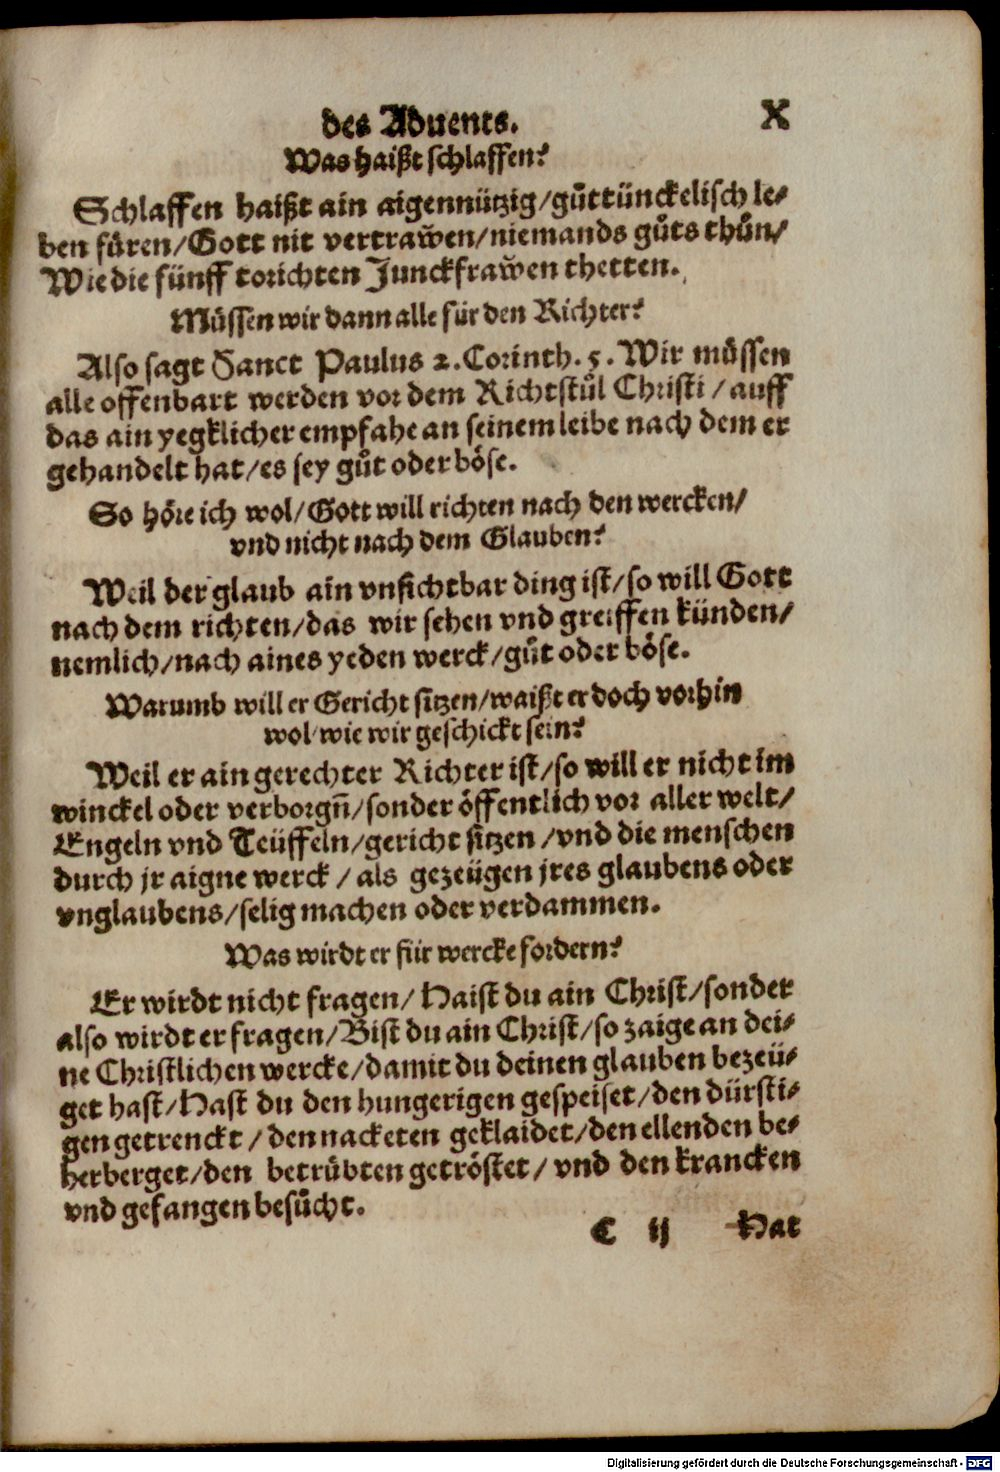 des Aduents. X
Was haißt schlaffen?
Schlaffen haißt ain aigennützig/gůttünckelisch le-
ben füren/Gott nit vertrawen/niemands gůts thůn/
Wie die fünff torichten Junckfrawen thetten.
Müssen wir dann alle für den Richter?
Also sagt Sanct Paulus 2. Corinth. 5. Wir müssen
alle offenbart werden vor dem Richtstůl Christi / auff
das ain yegklicher empfahe an seinem leibe nach dem er
gehandelt hat/es sey gůt oder böse.
So höre ich wol/Gott will richten nach den wercken/
vnd nicht nach dem Glauben?
Weil der glaub ain vnsichtbar ding ist/so will Gott
nach dem richten/das wir sehen vnd greiffen künden/
nemlich/nach aines yeden werck/gůt oder böse.
Warumb will er Gericht sitzen/waißt er doch vorhin
wol/wie wir geschickt sein?
Weil er ain gerechter Richter ist/so will er nicht im
winckel oder verborgn̄/sonder öffentlich vor aller welt/
Engeln vnd Teüffeln/gericht sitzen/vnd die menschen
durch jr aigne werck / als gezeügen jres glaubens oder
vnglaubens/selig machen oder verdammen.
Was wirdt er für wercke fordern?
Er wirdt nicht fragen/ Haist du ain Christ/sonder
also wirdt er fragen/Bist du ain Christ/so zaige an dei-
ne Christlichen wercke/damit du deinen glauben bezeü-
get hast/Hast du den hungerigen gespeiset/den dürsti-
gen getrenckt / den nacketen geklaidet/den ellenden be-
herberget/den betrübten getröstet/ vnd den krancken
vnd gefangen besůcht.
C ij Hat
Digitalisierung gefördert durch die Deutsche Forschungsgemeinschaft - DFG